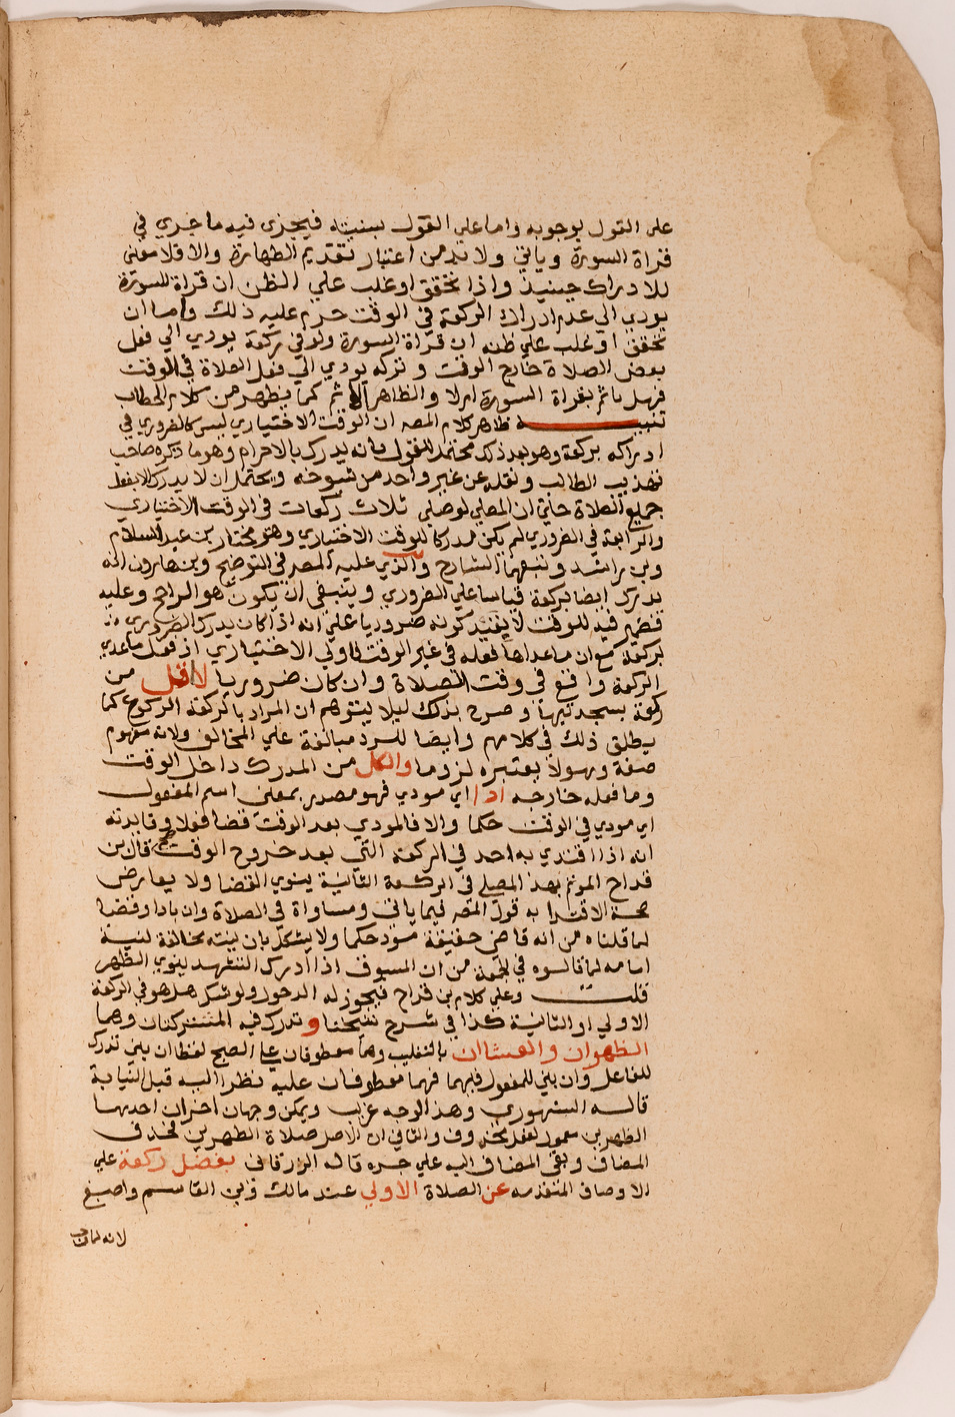 على القول بوجوبه واما على القول بسنيته فيجزى فيه ما جري في
قراة السورة وياتي ولا بد من اعتبار تقديم الطهارة والا فلا معنى
للادراك حينيذ واذا تحقق او غلب علي الظن ان قراة السورة
يودي الي عدم ادراك الركعة في الوقت حرم عليه ذلك واما ان
تحقق او غلب علي ظنه ان قراة السورة ولو في ركعة يودي الي فعل
بعض الصلاة خارج الوقت وتركه يودي الي فعل الصلاة في الوقت
فهل ياثم بقراة السورة ام لا والظاهر الاثم كما يظهر من كلام الحطاب
تنبيه ظاهر كلام المصه ان الوقت الاختياري ليس كالضروري في
ادراكه بركعة وهو بعد ذلك محتمل للقول بانه يدرك بالاحرام وهو ما ذكره صاحب
تهذيب الطالب ونقله عن غير واحد من شيوخه ويحتمل ان لا يدرك الا بفعل
جميع الصلاة حتي ان المصلي لو صلي ثلاث ركعات في الوقت الاختياري
والرابعة في الضروري لم يكن مدركا للوقت الاختياري وهو مختار بن عبد السلام
وبن راشد وتبعهما الشارح والذي عليه المصه في التوضيح وبن هارون انه
يدرك ايضا بركعة قياسا علي الضروري وينبغي ان يكون هو الراجح وعليه
فضمير فيه للوقت لا بقيد كونه ضروريا علي انه اذا كان يدرك الضروري
بركعة مع ان ما عداها فعله في غير الوقت فاولي الاختياري اذ فعل ما عدي
الركعة واقع في وقت الصلاة وان كان ضروريا لا اقل من
ركعة بسجدتيها وصرح بذلك ليلا يتوهم ان المراد بالركعة الركوع كما
يطلق ذلك في كلامهم وايضا للرد مبالغة علي المخالف ولانه مفهوم
صفة وهو لا يعتبره لزوما والكل من المدرك داخل الوقت
وما فعله خارجه ادا اي مودي فهو مصدر بمعنى اسم المفعول
اي مودي في الوقت حكما والا فالمودي بعد الوقت قضا فعلا وفايدته
انه اذا اقتدي به احد في الركعة التي بعد خروج الوقت صح قال بن
قداح الموتم بهذ المصلي في الركعة الثانية ينوي القضا ولا يعارض
صحة الاقتدا به قول المصه فيما ياتي ومساواة في الصلاة وان بادا وقضا
لما قلناه من انه قاض حقيقة مود حكما ولا يشكل بان نيته مخالفة لنية
امامه لما قالوه في الجمعة من ان المسبوق اذا ادرك التشهد ينوي الظهر
قلت وعلي كلام بن قداح فيجوز له الدخول ولو شك هل هو في الركعة
الاولي او الثانية كذا في شرح شيخنا وتدرك فيه المشتركتان وهما
الظهران والعشاان بالتغليب وهما معطوفان علي الصبح لفظا ان بني تدرك
للفاعل وان بني للمفعول فيهما فهما معطوفان عليه نظرا اليه قبل النيابة
قاله السنهوري وهذ الوجه غريب ويمكن وجهان اخران احدهما
الظهرين معمول لفعل محذوف والثاني ان الاصل صلاة الظهرين فحذف
المضاف وبقي المضاف اليه علي جره قاله الزرقاني بفضل ركعة علي
الاوصاف المتقدمه عن الصلاة الاولي عند مالك وبن القاسم واصبغ
لانه لما